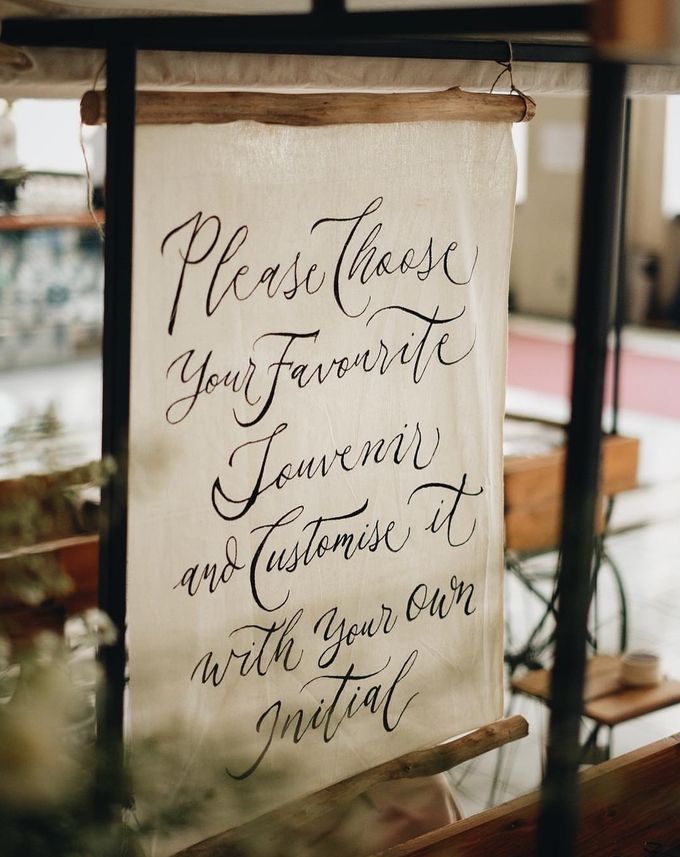 Please Choose
Your Favourite
Souvenir
and Customise it
with your own
Initial